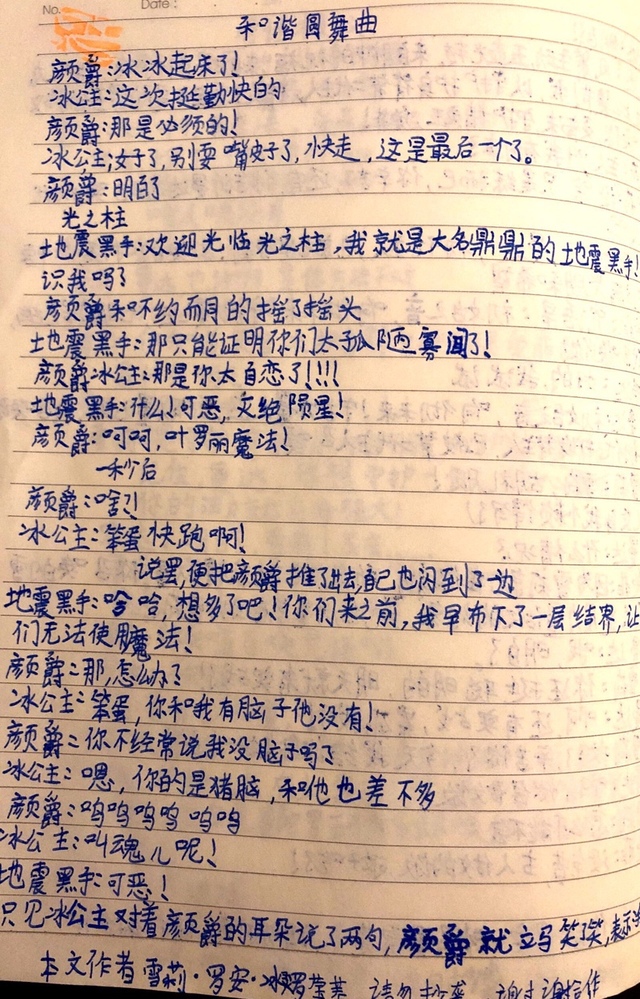 No.
Date:
和谐圆舞曲
颜爵:冰冰起床了!
冰公主:这次挺勤快的
颜爵:那是必须的!
冰公主:好了,别耍嘴皮子了,快走,这是最后一个了。
颜爵:明白了
光之柱
地震黑手:欢迎光临光之柱,我就是大名鼎鼎的地震黑手!
识我吗?
颜爵和不约而同的摇了摇头
地震黑手:那只能证明你们太孤陋寡闻了!
颜爵冰公主:那是你太自恋了!!!!
地震黑手:什么!可恶,灭绝陨星!
颜爵:呵呵,叶罗丽魔法!
一秒后
颜爵:啥?!
冰公主:笨蛋快跑啊!
说罢,便把颜爵推了出去,自己也闪到了一边
地震黑手:哈哈,想多了吧!你们来之前,我早布下了一层结界,让
们无法使用魔法!
颜爵:那,怎么办?
冰公主:笨蛋,你和我有脑子他没有!
颜爵:你不经常说我没脑子吗?
冰公主:嗯,你的是猪脑,和他也差不多
颜爵:呜呜呜呜呜呜
冰公主:叫魂儿呢!
地震黑手:可恶!
只见冰公主对着颜爵的耳朵说了两句,颜爵就立马笑了笑,表示
本文作者雪莉·罗安·冰 请勿 谢谢合作